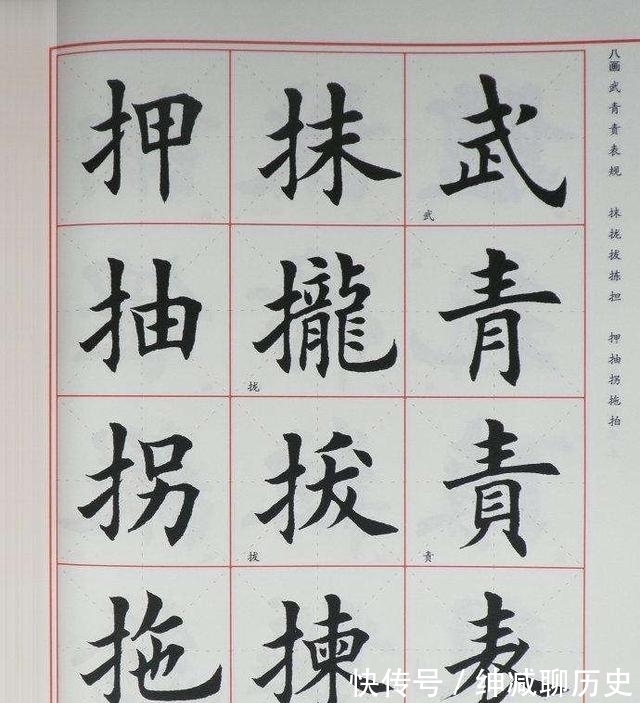 八画 武青责表规 抹拢拔拣担 押抽拐拖拍
武青責表
武
责
抹攏拔揀
拢
拔
押抽拐拖
快传号/绅减聊历史